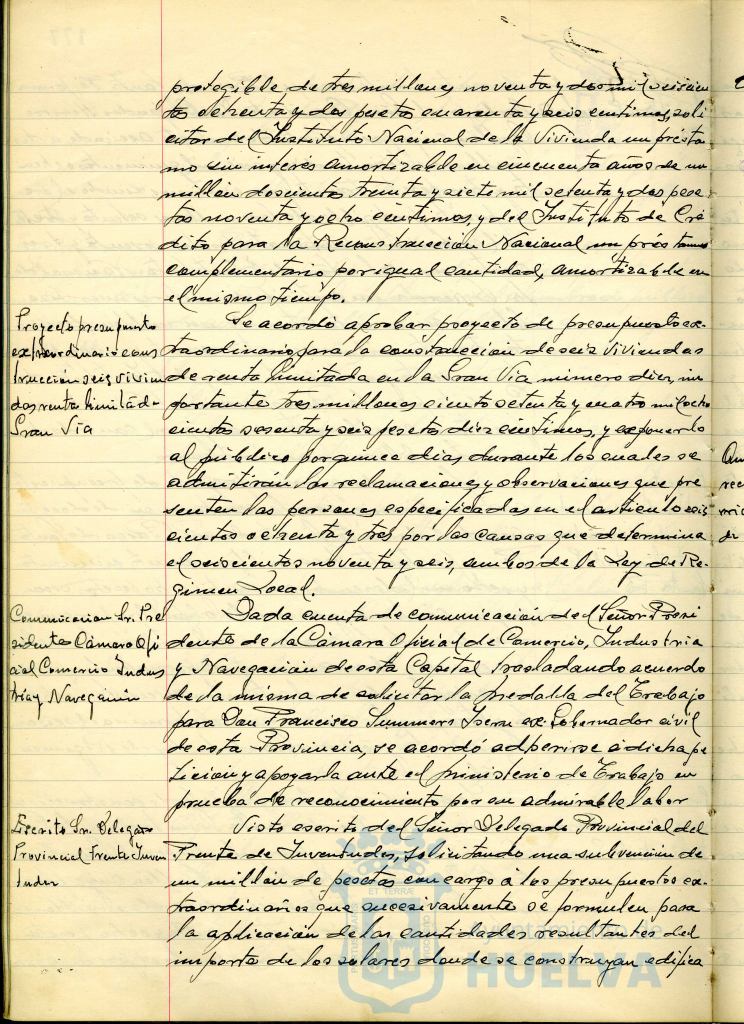 protegible de tres millones noventa y dos mil seiscien
tos ochenta y dos pesetas cuarenta y seis centimos, soli
citar del Instituto Nacional de la Vivienda un présta
mo sin interés amortizable en cincuenta años de un
millón doscientas treinta y siete mil setenta y dos pese
tas noventa y ocho centimos, y del Instituto de Cré
dito para la Reconstrucción Nacional un préstamo
complementario por igual cantidad, amortizable en
el mismo tiempo.
Proyecto presupuesto
extraordinario cons
trucción seis vivien
das renta limitada
Gran Vía
Se acordó aprobar proyecto de presupuesto ex-
traordinario para la construcción de seis viviendas
de renta limitada en la Gran Vía número diez, im
portante tres millones ciento setenta y cuatro mil ocho
cientas sesenta y seis pesetas diez centimos, y exponerlo
al público por quince días durante los cuales se
admitirán las reclamaciones y observaciones que pre
senten las personas especificadas en el artículo seis
cientos ochenta y tres por las causas que determina
el seiscientos noventa y seis, ambos de la Ley de Ré-
gimen Local.
Comunicación Sr. Pre
sidente Cámara Ofi
cial Comercio Indus
tria y Navegación
Dada cuenta de comunicación del Señor Presi
dente de la Cámara Oficial de Comercio, Industria
y Navegación de esta Capital trasladando acuerdo
de la misma de solicitar la medalla del Trabajo
para Don Francisco Summers Isern ex-Gobernador civil
de esta Provincia, se acordó adherirse a dicha pe
tición y apoyarla ante el ministerio de Trabajo en
prueba de reconocimiento por su admirable labor
Escrito Sr. Delegado
Provincial Frente Juven
tudes
Visto escrito del Señor Delegado Provincial del
Frente de Juventudes, solicitando una subvención de
un millón de pesetas con cargo á los presupuestos ex-
traordinarios que sucesivamente se formulen para
la aplicación de las cantidades resultantes del
importe de los solares donde se construyan edifica
HUELVA